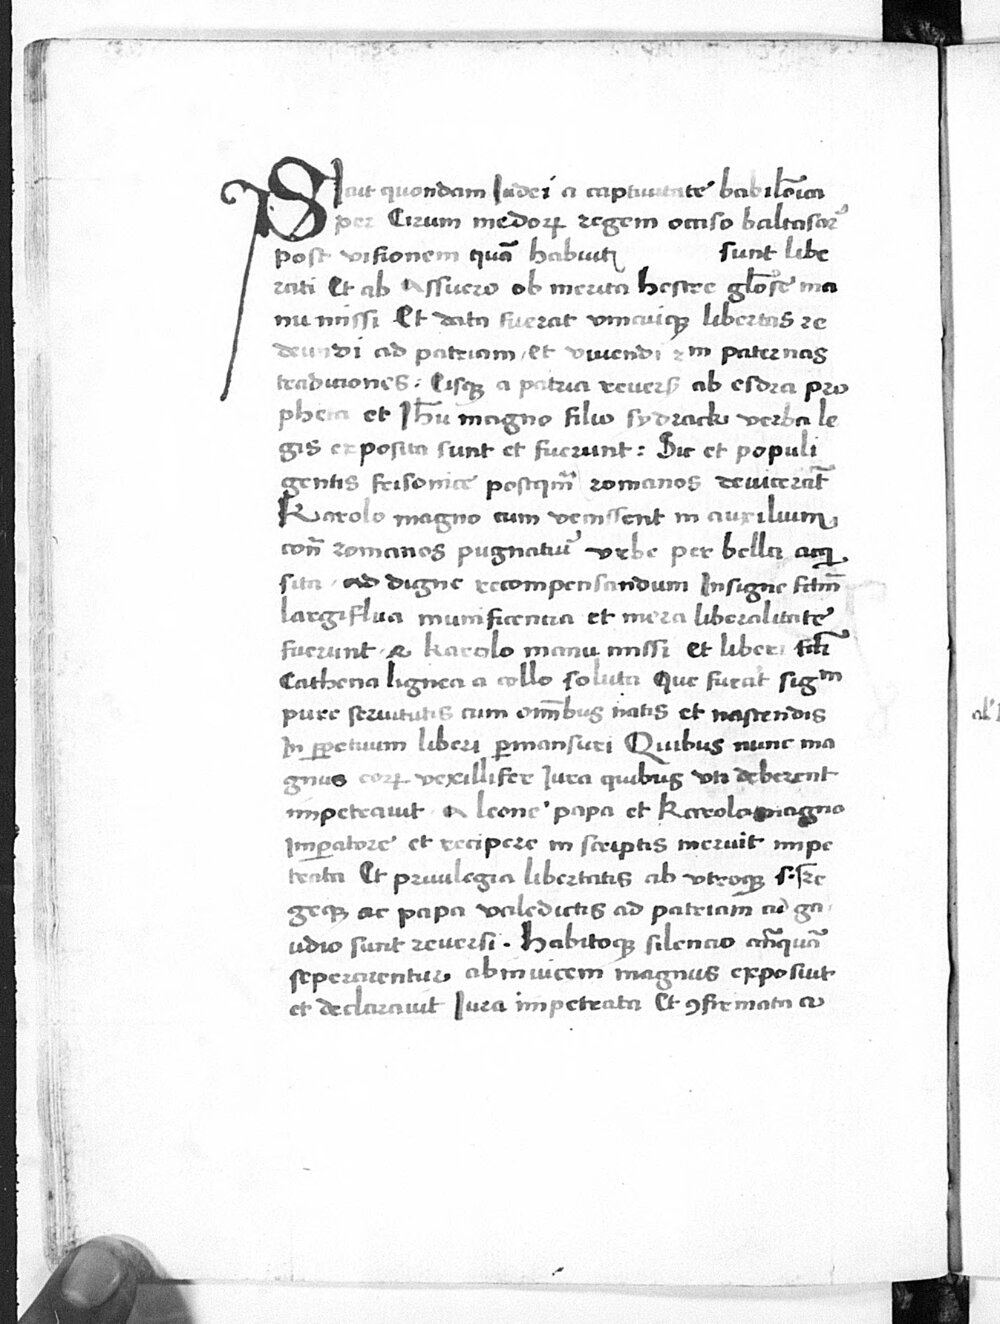 Sicut quondam Iudei a captiuitate babilōica
per Cirum medoꝝ regem occiso baltasar
post visionem quā habuit sunt libe
rati Et ab Assuero ob merita hestre glōse ma
nu missi Et data fuerat vnicuiqꝫ libertas re
deundi ad patriam, et viuendi rm paternas
traditiones: Eisqꝫ a patria reuers ab esdra pro
pheta et Jh̄u magno filio sydrack verba le
gis exposita sunt et fuerunt: Sic et populi
gentis frisonice postqm̄ romanos deuicerāt
Karolo magno cum venissent in auxilium
con̄ romanos pugnatur vrbe per bella acq
sita, ad digne recompensandum Insigne fctm̄
largiflua munificentia et mera liberalitate
fuerunt a karolo manu missi et liberi fcti
Cathena lignea a collo soluta Que fuerat sigm
pure seruitutis cum om̄ibus natis et nascendis
In ꝑpetuum liberi ꝑmansuri Quibus nunc ma
gnus eorꝝ vexillifer Jura quibus vti deberent
impetrauit A leone papa et Karolo magno
Imꝑatore et recipere in scriptis meruit impe
trata Et priuilegia libertatis ab vtroqꝫ s. re
geqꝫ ac papa valedictis ad patriam cū ga
udio sunt reuersi. Habitoqꝫ silencio an̄quā
seperarentur abinuicem magnus exposuit
et declarauit Jura impetrata Et ꝯfirmata a